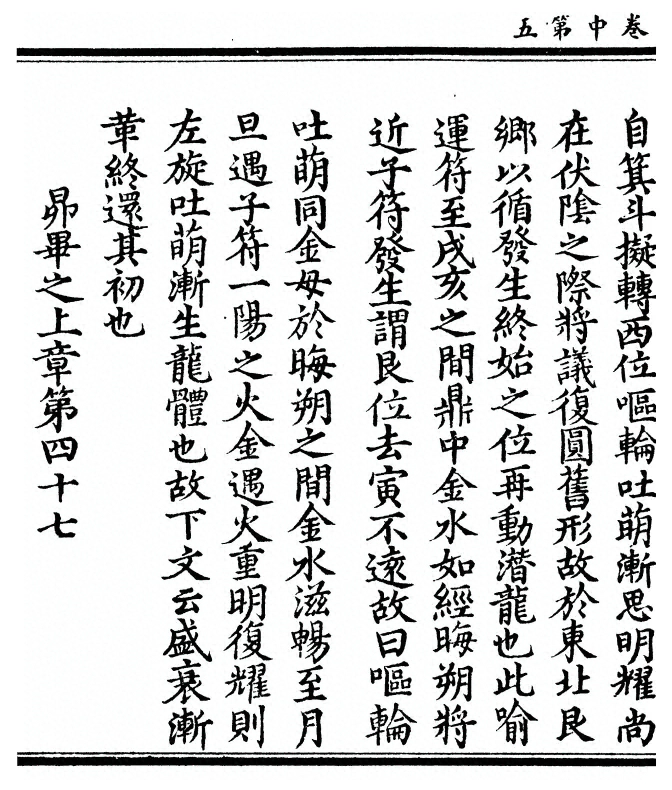 卷中第五
自箕斗擬轉西位嘔輪吐萌漸思明耀尚
在伏陰之際將議復圓舊形故於東北艮
鄉以循發生終始之位再動潛龍也此喻
運符至戌亥之間鼎中金水如經晦朔將
近子符發生謂艮位去寅不遠故曰嘔輪
吐萌同金母於晦朔之間金水滋暢至月
旦遇子符一陽之火金遇火重明復耀則
左旋吐萌漸生龍體也故下文云盛衰漸
革終還其初也
昴畢之上章第四十七